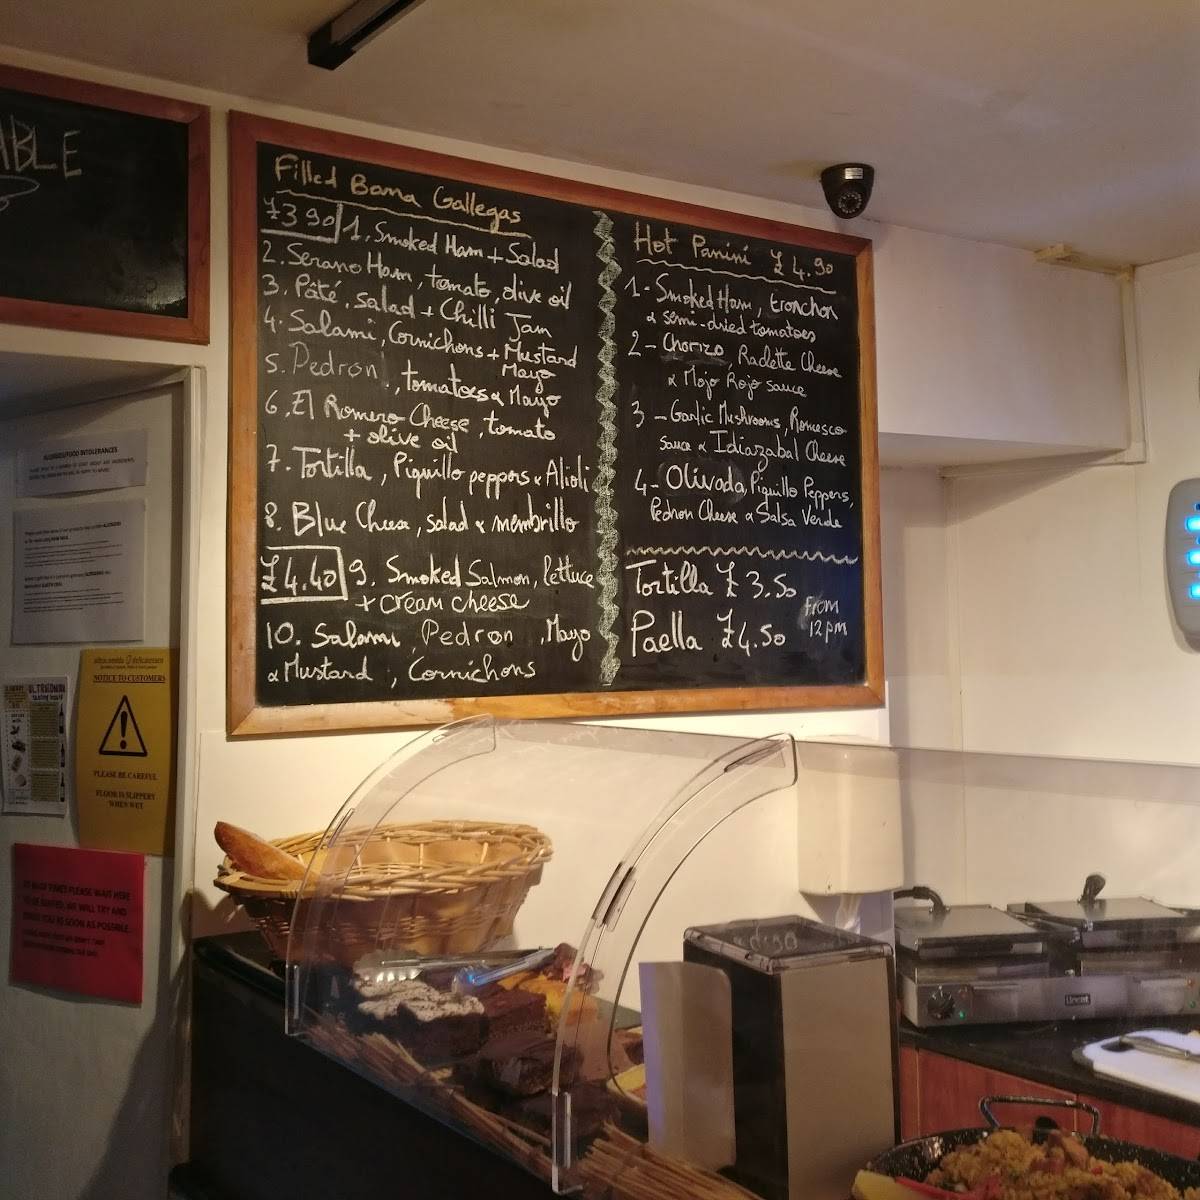 ABLE
Filled Barra Gallegas
£3.90 1. Smoked Ham + Salad
2. Serano Ham, tomato, olive oil
3. Pâté, salad + Chilli Jam
4. Salami, Cornichons + Mustard
Mayo
5. Pedron, tomatoes & Mayo
6. El Romero Cheese, tomato
+ olive oil
7. Tortilla, Piquillo peppers & Alioli
8. Blue Cheese, salad & membrillo
£4.40 9. Smoked Salmon, lettuce
+ cream cheese
10. Salami, Pedron, Mayo
& Mustard, Cornichons
Hot Panini £4.90
1 - Smoked Ham, tronchon
& semi-dried tomatoes
2 - Chorizo, Raclette Cheese
& Mojo Rojo sauce
3 - Garlic Mushrooms, Romesco
sauce & Idiazabal Cheese
4 - Olivada, Piquillo Peppers,
Pedron Cheese & Salsa Verde
Tortilla £3.50
Paella £4.50
from
12pm
ALLERGIES/FOOD INTOLERANCES
delicatessen
NOTICE TO CUSTOMERS
PLEASE BE CAREFUL
FLOOR IS SLIPPERY
WHEN WET
AT BUSY TIMES PLEASE WAIT HERE
TO BE SERVED, WE WILL TRY AND
SERVE YOU AS SOON AS POSSIBLE.
Lincat